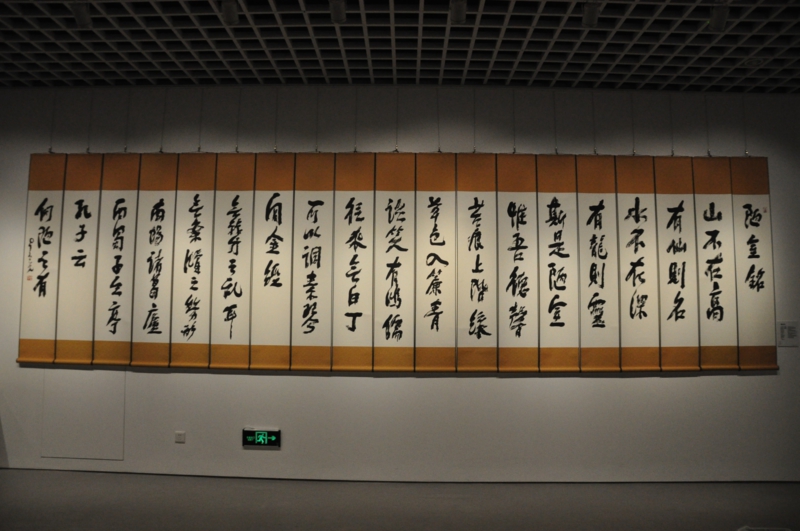 陋室銘
山不在高
有仙則名
水不在深
有龍則靈
斯是陋室
惟吾德馨
苔痕上階綠
草色入簾青
談笑有鴻儒
往來無白丁
可以調素琴
閱金經
無絲竹之亂耳
無案牘之勞形
南陽諸葛廬
西蜀子云亭
孔子云
何陋之有